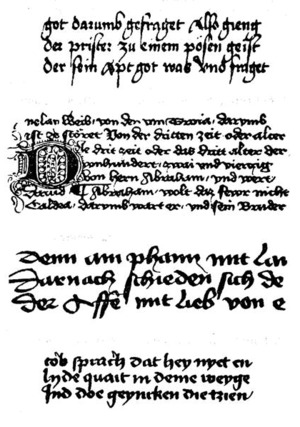 got darumb gefraget Also gieng
der prister zu einem pösen geist
der sein Apt got was vnd fraget
von den von Troia, darumb
ist zerstöret Von der dritten zeit oder alter
die drit zeit oder das drit alter der
hundert, zwai und vierzig
von hern Abraham, und wert
Dauid Abraham, wolt das fewr nicht
Caldea, darumb wart er, und sein Bruder
Denn am phann mit
Darnach schieden sich de
der Affe mit lieb von e
sprach dat hey nyet en
Inde quait in deme weyge
Ind doe geyncken die tzien